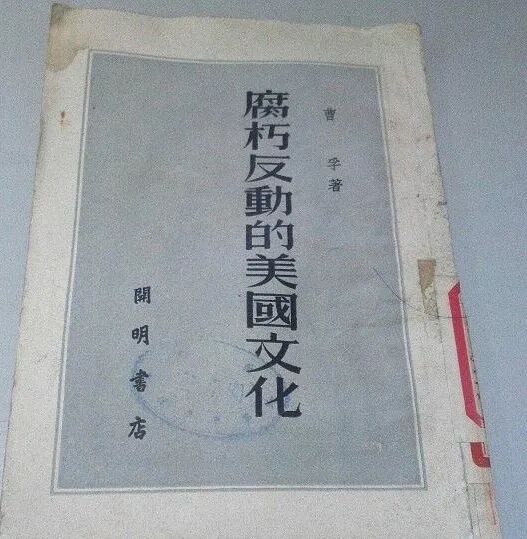 曹孚著
腐朽反動的美國文化
開明書店